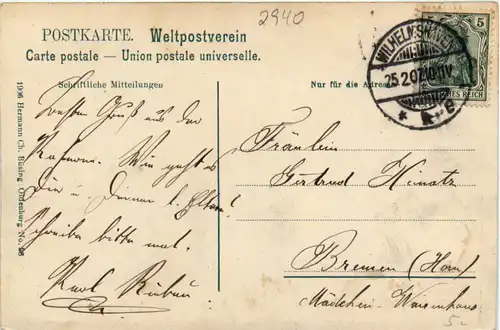 2940
POSTKARTE. Weltpostverein
Carte postale — Union postale universelle.
Schriftliche Mitteilungen
Nur für die Adresse
WILHELMSHAVEN
25.2.07.10-11V.
* a
5
DEUTSCHES REICH
1906 Hermann Ch. Büsing Oldenburg No.
Besten Gruß aus der
Kaserne. Wie geht es
Dir u. Deinen l. Eltern?
Schreibe bitte mal.
Karl
Fräulein
Gertrud
Bremen (Horn)
Mädchen-Waisenhaus
5-